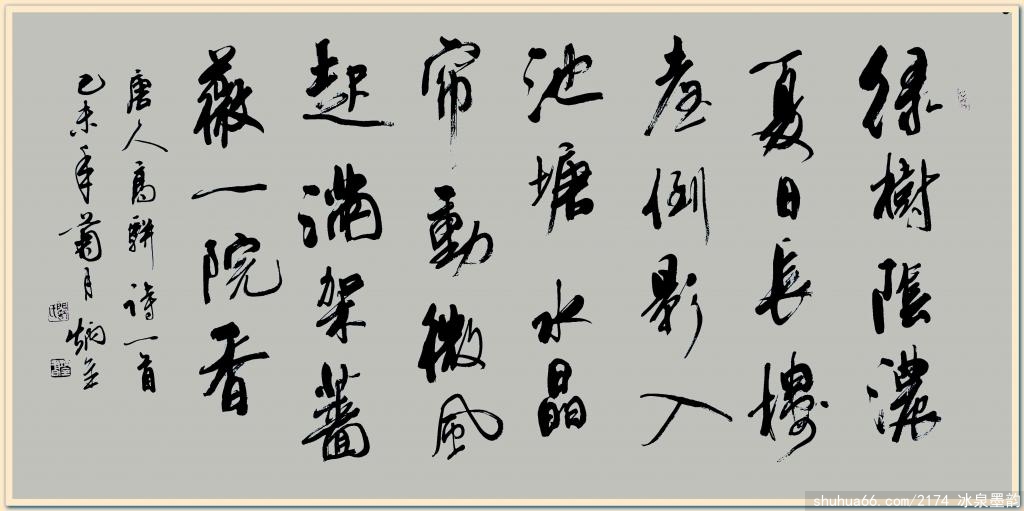 绿樹陰濃
夏日長樓
臺倒影入
池塘水晶
帘動微風
起滿架薔
薇一院香
唐人高駢詩一首
己未年菊月 炳金
shuhua66.com/2174 冰泉墨韵